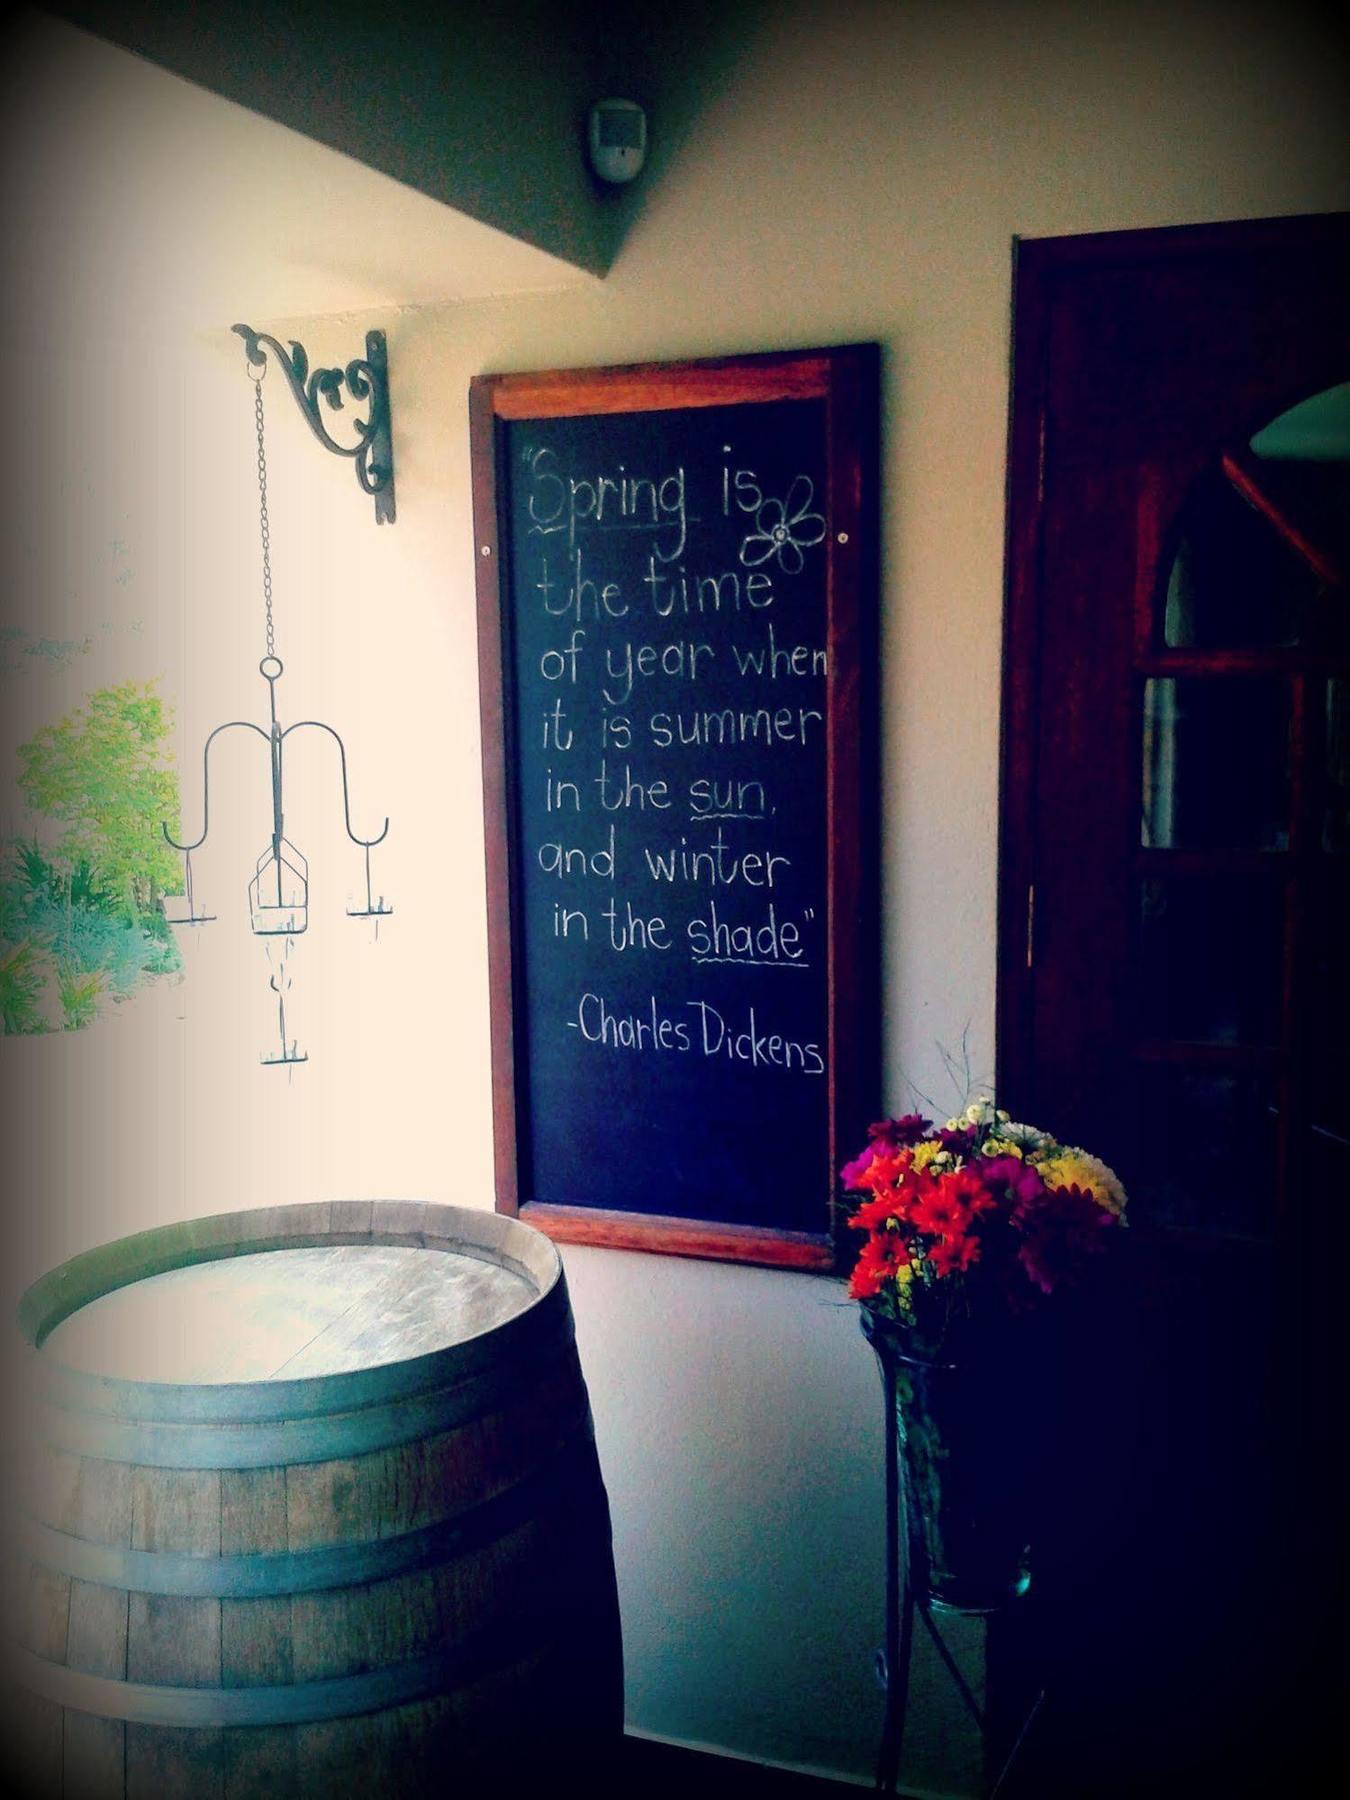 "Spring is
the time
of year when
it is summer
in the sun,
and winter
in the shade"
-Charles Dickens